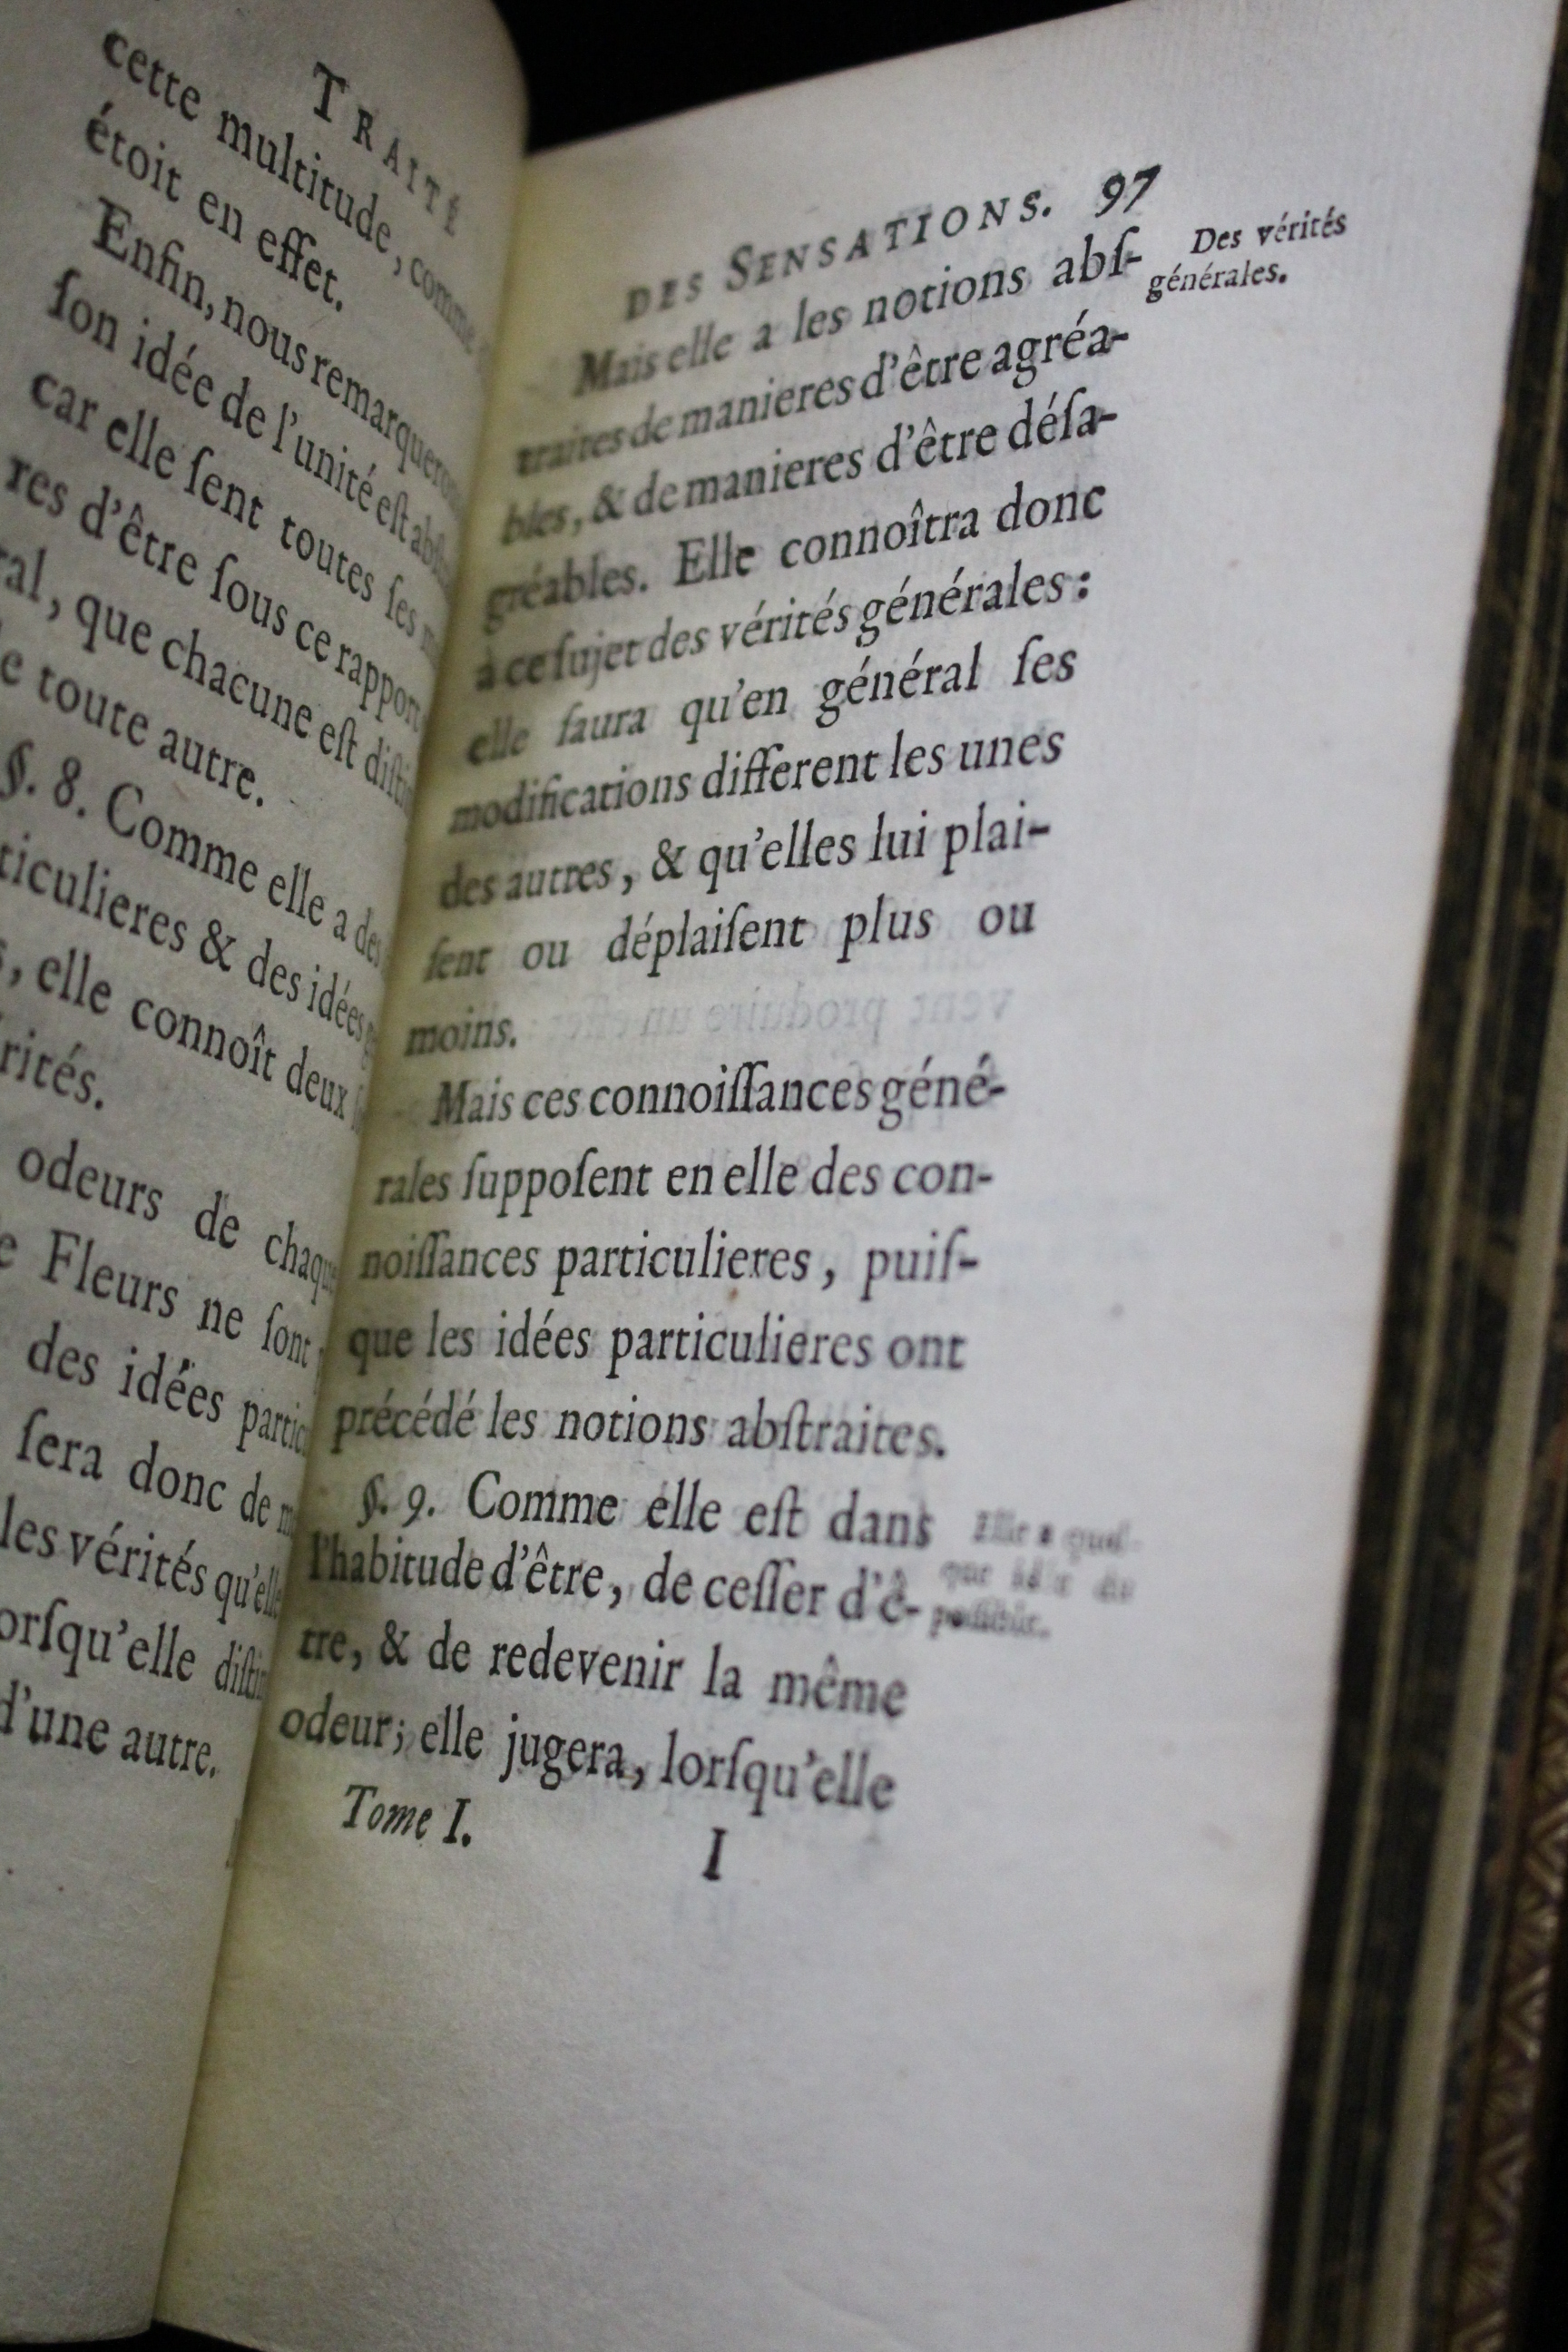 TRAITÉ
cette multitude, comme
étoit en effet.
Enfin, nous remarquerons
ſon idée de l'unité eſt abſ
car elle ſent toutes ſes
res d'être ſous ce rapport
ral, que chacune eſt diſtin
e toute autre.
§. 8. Comme elle a des
ticulieres & des idées
, elle connoît deux
rités.
odeurs de chaque
e Fleurs ne ſont
des idées partic
ſera donc de m
les vérités qu'elle
orſqu'elle diſtin
d'une autre.
DES SENSATIONS. 97
Mais elle a les notions abſ-
traites de manieres d'être agréa-
bles, & de manieres d'être déſa-
gréables. Elle connoîtra donc
à ce ſujet des vérités générales :
elle ſaura qu'en général ſes
modifications different les unes
des autres, & qu'elles lui plai-
ſent ou déplaiſent plus ou
moins.
Mais ces connoiſſances géné-
rales ſuppoſent en elle des con-
noiſſances particulieres, puiſ-
que les idées particulieres ont
précédé les notions abſtraites.
§. 9. Comme elle eſt dans
l'habitude d'être, de ceſſer d'ê-
tre, & de redevenir la même
odeur; elle jugera, lorſqu'elle
Tome I. I
Des vérités
générales.
Elle a quel-
que idée du
poſſible.